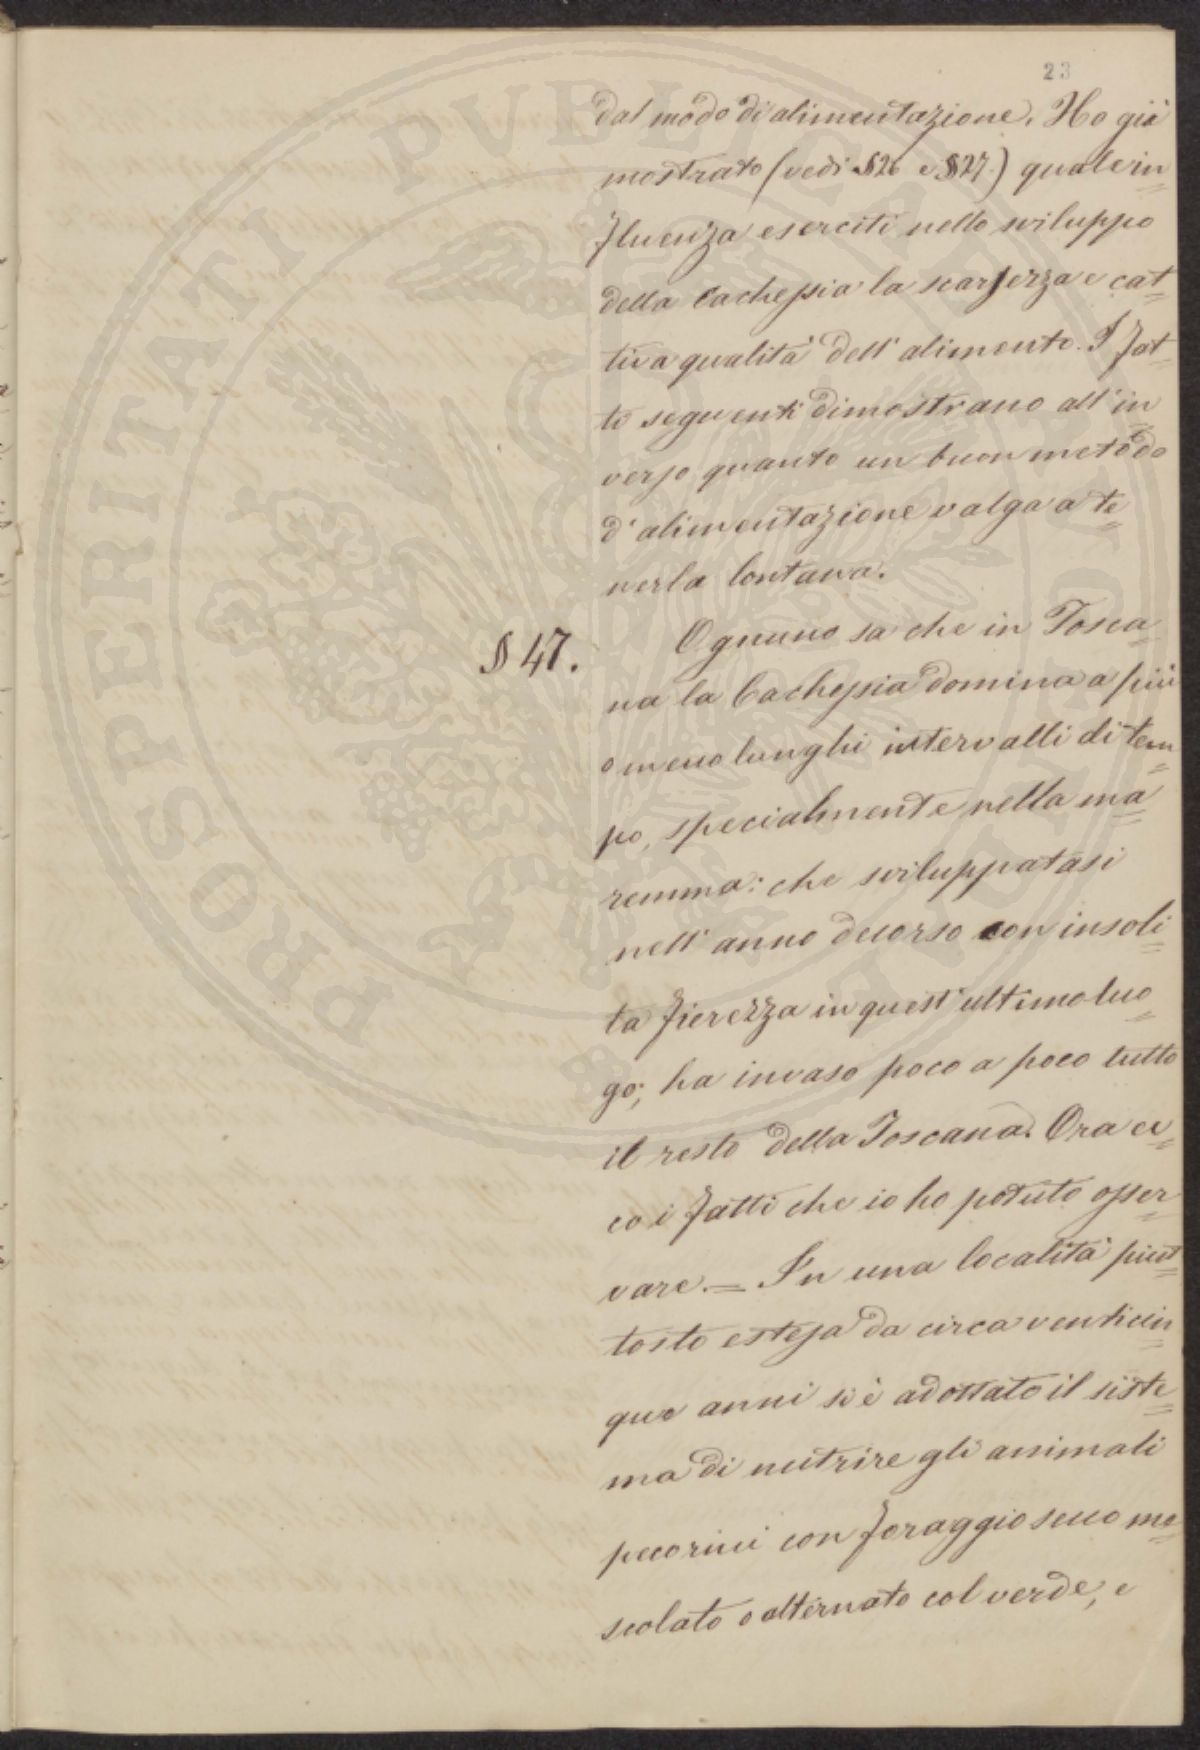 23
dal modo di alimentazione. Ho già
mostrato (vedi §26 e §27.) quale in=
fluenza eserciti nello sviluppo
della Cachessia la scarsezza e cat=
tiva qualità dell' alimento. I fat=
ti seguenti dimostrano all' in
verso quanto un buon metodo
d' alimentazione valga a te=
nerla lontana.
§ 47. Ognuno sa che in Tosca=
na la Cachessia domina a più
o meno lunghi intervalli di tem=
po, specialmente nella ma=
remma: che sviluppatasi
nell' anno decorso con insoli=
ta fierezza in quest' ultimo luo=
go; ha invaso poco a poco tutto
il resto della Toscana. Ora ec=
co i fatti che io ho potuto osser=
vare. = In una località piut=
tosto estesa da circa venticin=
que anni si è adottato il siste=
ma di nutrire gli animali
pecorini con foraggio secco me=
scolato o alternato col verde, e
PROSPERITATI PVBLICAE